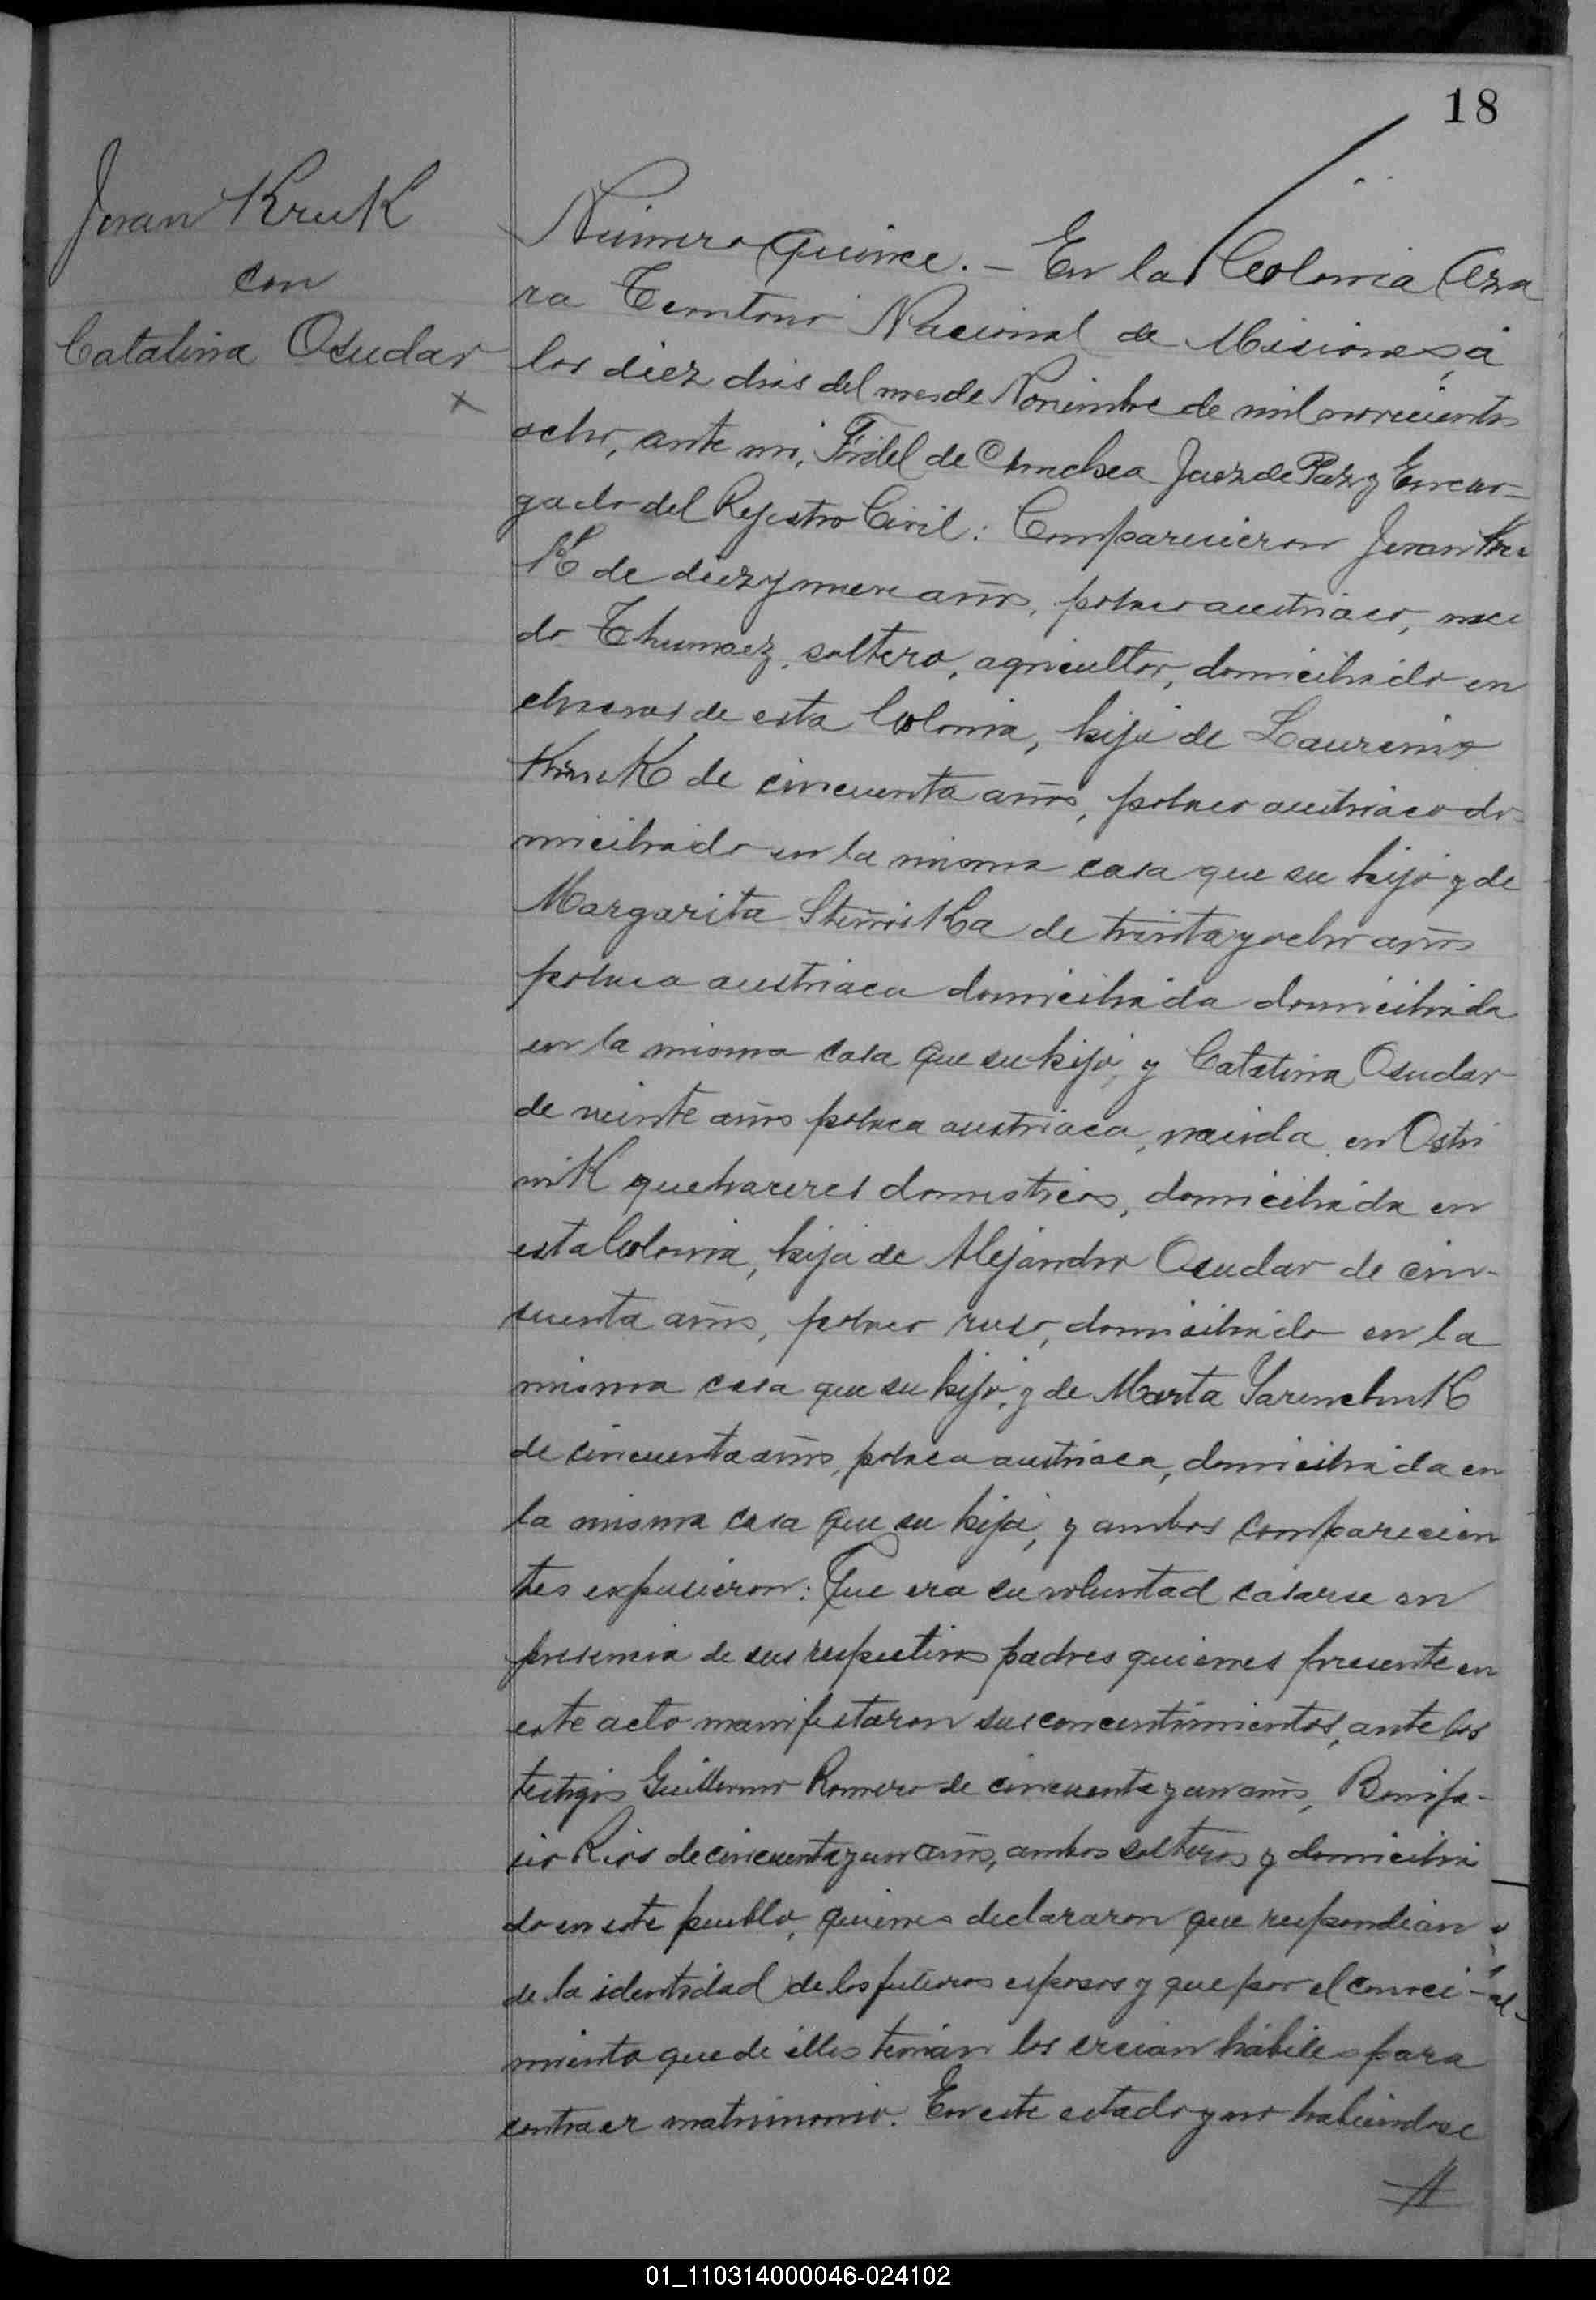 18
Juan Kruk
con
Catalina Osudar
x
Número quince.- En la Colonia Aza
ra Territorio Nacional de Misiones, á
los diez dias del mes de Noviembre de mil novecientos
ocho, ante mi, Fidel de Juez de Paz y Encar-
gado del Rejistro Civil: Comparecieron Juan Kru
K de diez y nueve años, polaco austriaco, naci
do Thumaez, soltero, agricultor, domiciliado en
chacras de esta Colonia, hijo de
Kruk de cincuenta años, polaco austriaco do-
miciliado en la misma casa que su hijo y de
Margarita de treinta y ocho años
polaca austriaca domiciliada domiciliada
en la misma casa que su hijo, y Catalina Osudar
de veinte años polaca austriaca, nacida en Ostri
niK quehaceres domesticos, domiciliada en
esta Colonia, hija de Alejandro Osudar de cin-
cuenta años, polaco ruso, domiciliado en la
misma casa que su hijo, y de Marta YarenchuK
de cincuenta años, polaca austriaca, domiciliada en
la misma casa que su hija, y ambos comparecien
tes expusieron: Que era su voluntad casarse en
presencia de sus respectivos padres quienes presente en
este acto manifestaron sus concentimientos, ante los
testigos Guillermo Romero de cincuenta y un años, Bonifa-
cio Rios de cincuenta y un años, ambos solteros y domicilia
do en este pueblo, quienes declararon que respondian
de la identidad de los futuros esposos y que por el conoci-
miento que de ellos tenian los creian habiles para
contraer matrimonio. En este estado y no habiendose
01_110314000046-024102